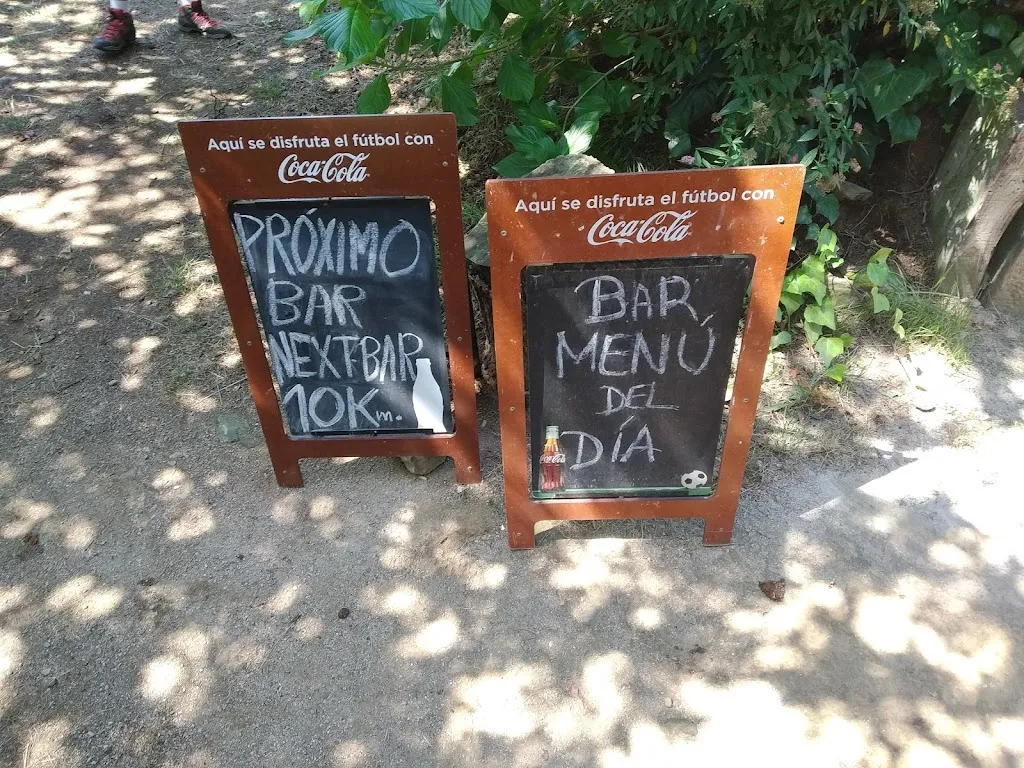 Aquí se disfruta el fútbol con
Coca-Cola
PRÓXIMO
BAR
NEXT-BAR
10Km.
Aquí se disfruta el fútbol con
Coca-Cola
BAR
MENÚ
DEL
DÍA
Coca-Cola